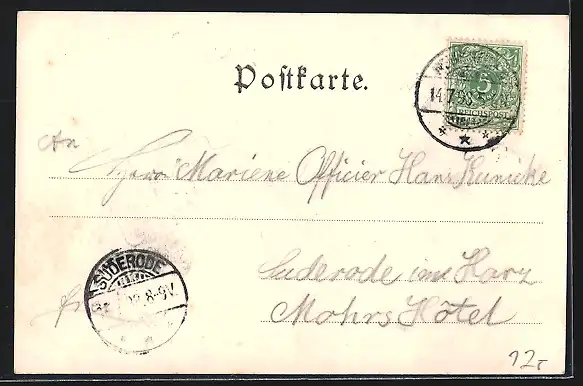 Postkarte.
5
REICHSPOST
14.7.99
An
Herrn Mariene Officier Hans Kunicke
Suderode im Harz
Mohrs Hôtel
SUDERODE
8-9V.
12,-